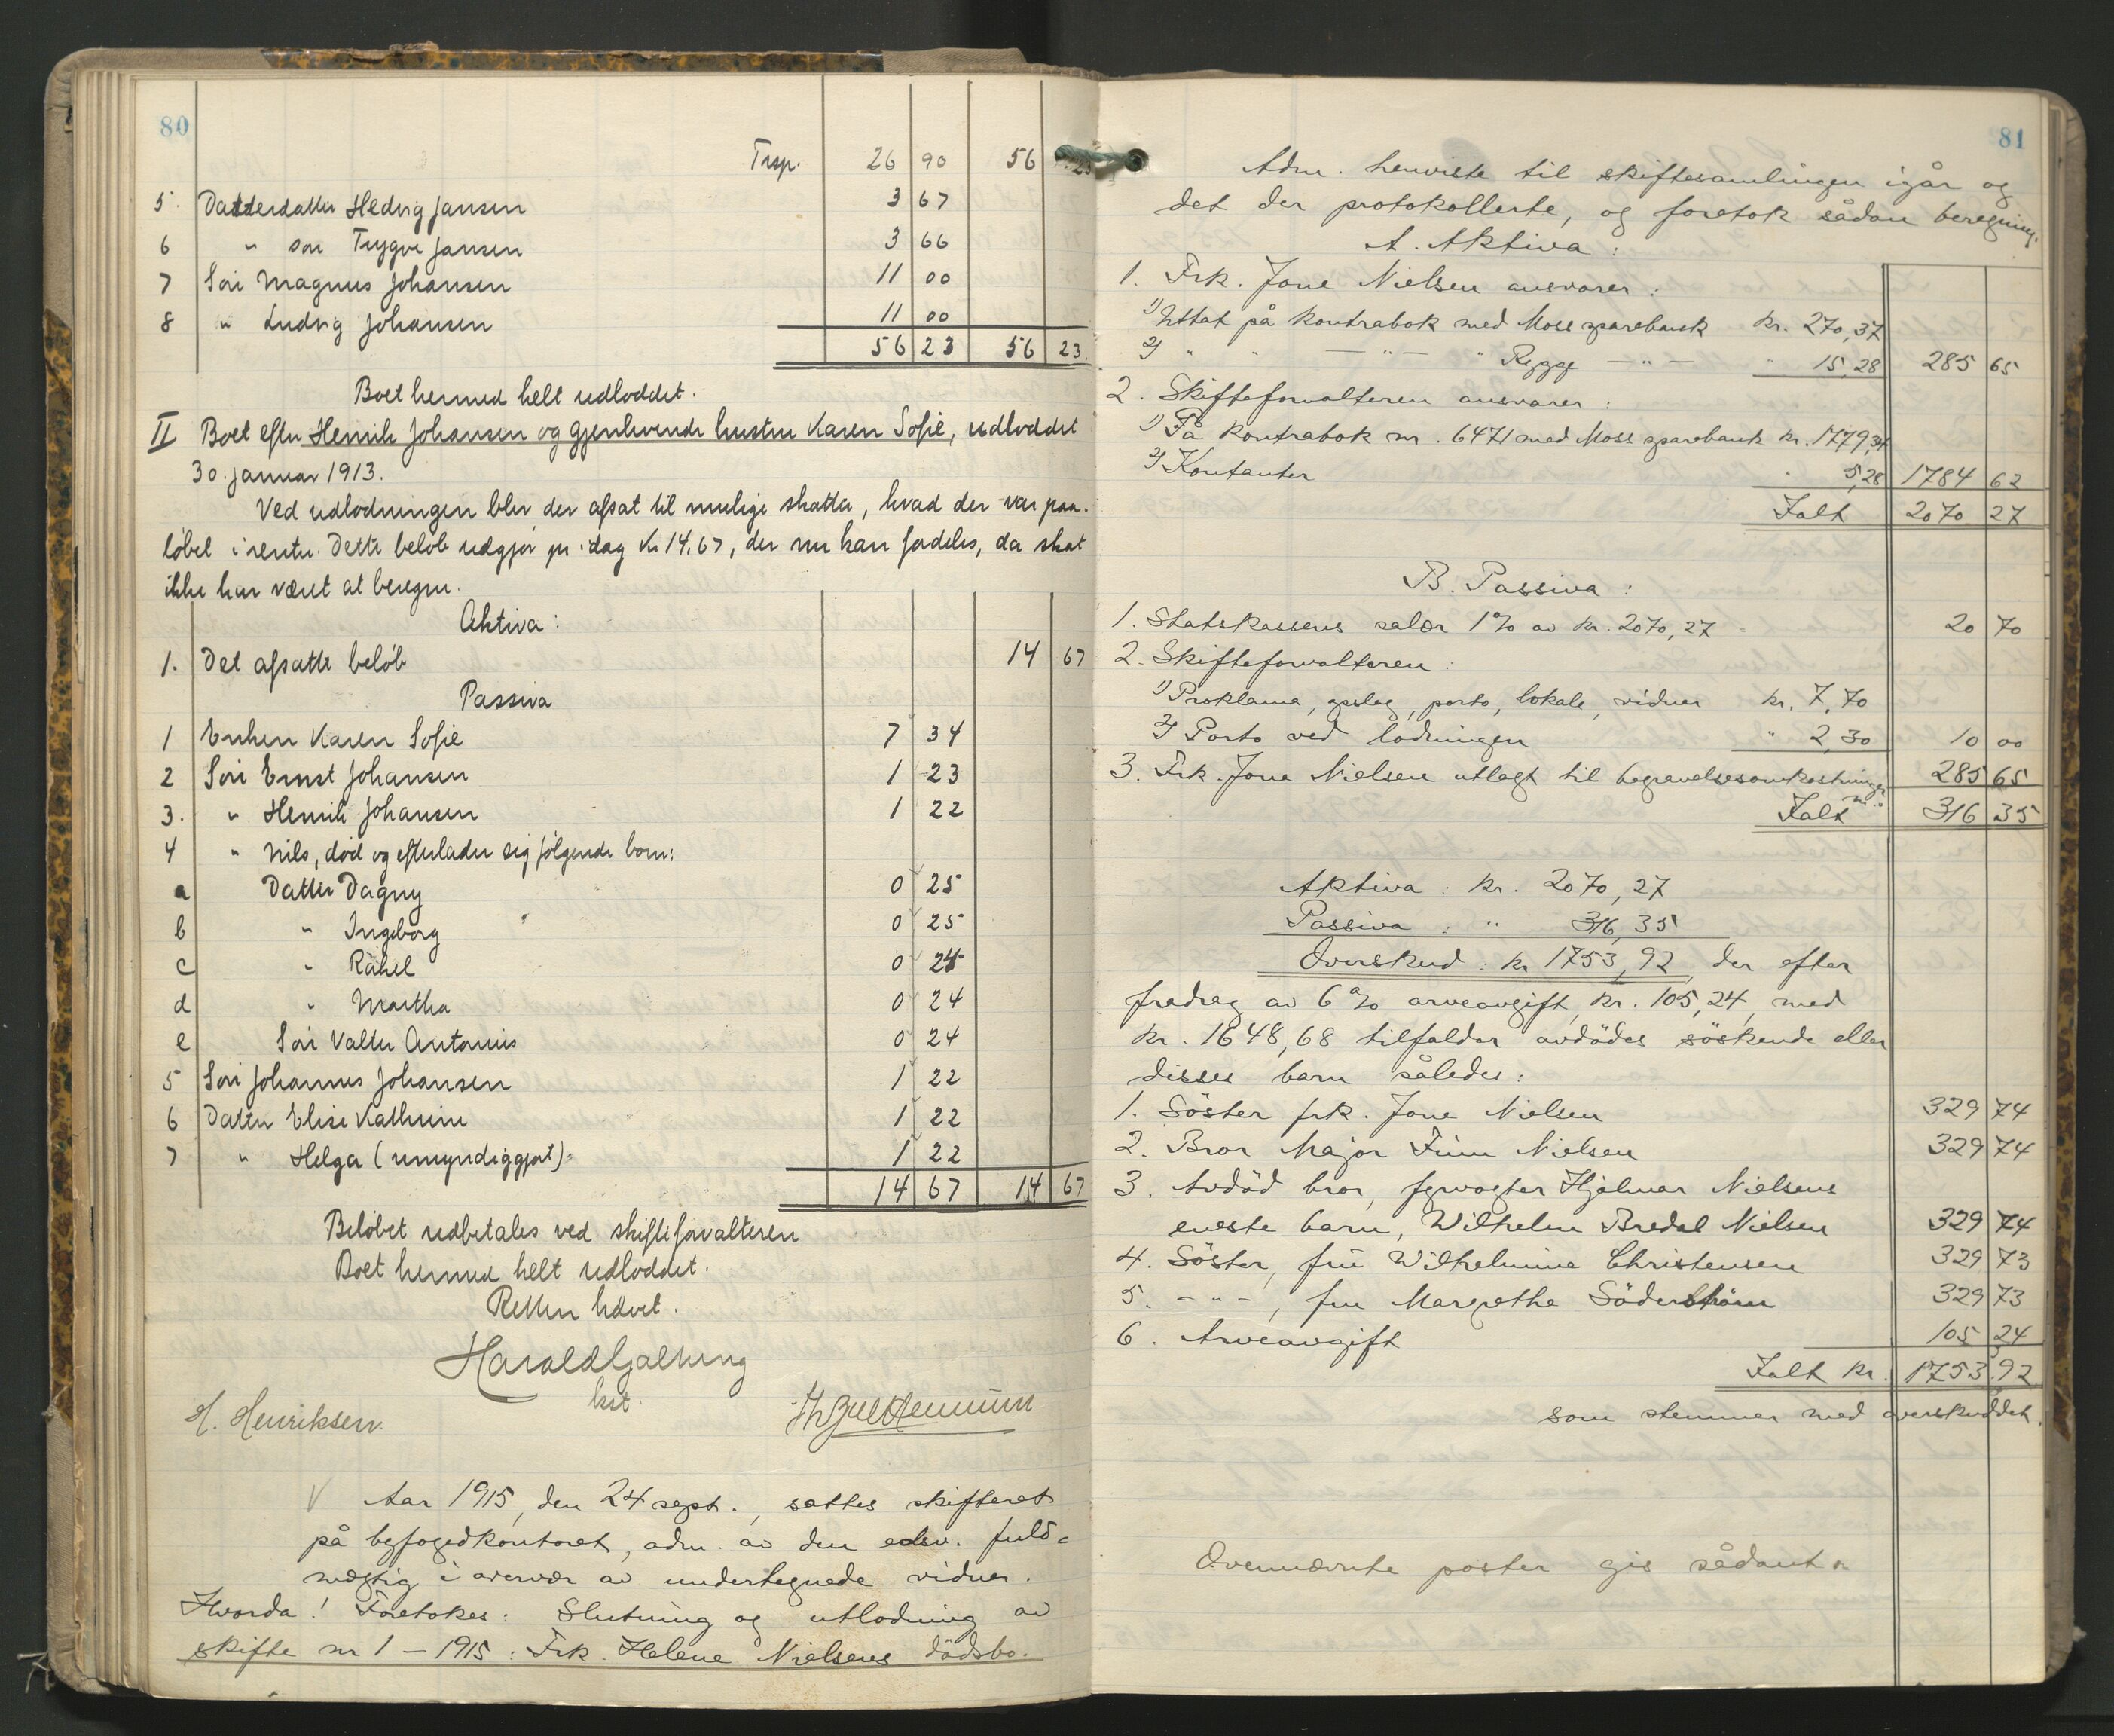 80
Trsp. 26 90 56 23
5 Datterdatter Hedvig Jansen 3 67
6 " søn Trygve Jansen 3 66
7 Søn Magnus Johansen 11 00
8 " Ludvig Johansen 11 00
56 23 56 23.
Boet hermed helt udloddet.
II Boet efter Henrik Johansen og gjenlevende hustru Karen Sofie, udloddet
30. januar 1913.
Ved udlodningen blev der afsat til mulige skatter, hvad der var paa-
løbet i renter. Dette beløb udgjør pr. idag Kr 14.67, der nu kan fordeles, da skat
ikke har været at beregne.
Aktiva:
1. Det afsatte beløb 14 67
Passiva
1 Enken Karen Sofie 7 34
2 Søn Ernst Johansen 1 23
3. " Henrik Johansen 1 22
4 " Nils, død og efterlader sig følgende børn:
a Datter Dagny 0 25
b " Ingeborg 0 25
c " Rakel 0 24
d " Martha 0 24
e Søn Valter Antonius 0 24
5 Søn Johannes Johansen 1 22
6 Datter Elise Kathrine 1 22
7 " Helga (umyndiggjort) 1 22
14 67 14 67
Beløbet udbetales ved skifteforvalteren
Boet hermed helt udloddet.
Retten hævet.
Harald Galtung
kst.
H. Henriksen.
Aar 1915, den 24 sept., sattes skifteret
på byfogedkontoret, adm. av den edsv. fuld-
mægtig i overvær av undertegnede vidner.
Hvorda! Foretokes: Slutning og utlodning av
skifte nr 1 – 1915: Frk. Helene Nielsens dödsbo.
81
Adm. henviste til skiftesamlingen igår og
det der protokollerte, og foretok sådan beregning.
A. Aktiva:
1. Frk. Jone Nielsen ansvarer:
1) Uttat på kontrabok med Moss sparebank kr. 270,37
2) " " — " — " Rygge — " — " 15,28 285 65
2. Skifteforvalteren ansvarer:
1) På kontrabok nr. 6471 med Moss sparebank kr. 1779,34
2) Kontanter " 5,28 1784 62
Ialt 2070 27
B. Passiva:
1. Statskassens salær 1% av kr. 2070,27 20 70
2. Skifteforvalteren:
1) Proklama, opslag, porto, lokale, vidner kr. 7,70
2) Porto ved lodningen " 2,30 10 00
3. Frk. Jone Nielsen utlagt til begravelsesomkostninger m. v. 285 65
Ialt 316 35
Aktiva: kr. 2070,27
Passiva: " 316,35
Overskud: kr 1753,92, der efter
fradrag av 6% arveavgift, kr. 105,24, med
kr. 1648,68 tilfalder avdödes söskende eller
disses barn således:
1. Söster frk. Jone Nielsen 329 74
2. Bror Major Finn Nielsen 329 74
3. Avdöd bror, fyrvogter Hjalmar Nielsens
eneste barn, Wilhelm Bredal Nielsen 329 74
4. Söster, fru Wilhelmine Christensen 329 73
5. - " -, fru Margrethe Söderström 329 73
6. Arveavgift 105 24
Ialt kr. 1753,92
som stemmer med overskuddet.
Ovennævnte poster gis sådant